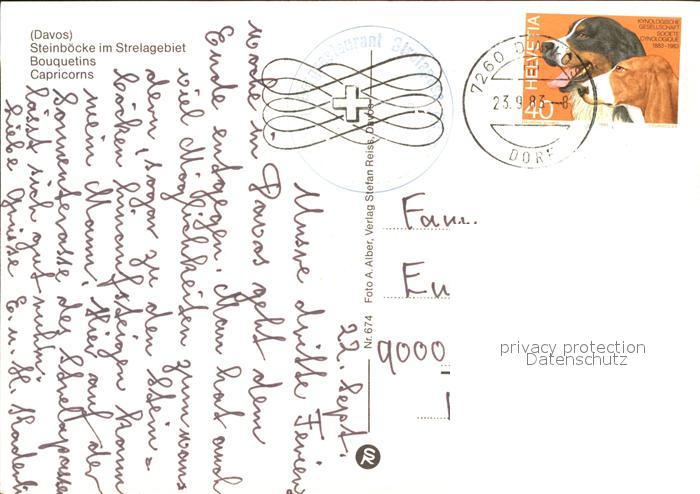 (Davos)
Steinböcke im Strelagebiet
Bouquetins
Capricorns
22. Sept.
Unsre dritte Ferien-
woche in Davos geht dem
Ende entgegen. Man hat auch
viel Möglichkeiten zum
dern, sogar zu den Stein=
böcken hinaufsteigen kann
mein Mann. Hier auf der
Sonnenterasse des Strelapasses
lässt sich gut ruhn.
Liebe Grüsse E. u. H.
Nr. 674 Foto A. Alber, Verlag Stefan Reiss, Davos
SR
7260 D
23.9.83-8
DORF
HELVETIA
40
KYNOLOGISCHE
GESELLSCHAFT
SOCIETE
CYNOLOGIQUE
1883-1983
Fam.
Eu
9000
privacy protection
Datenschutz